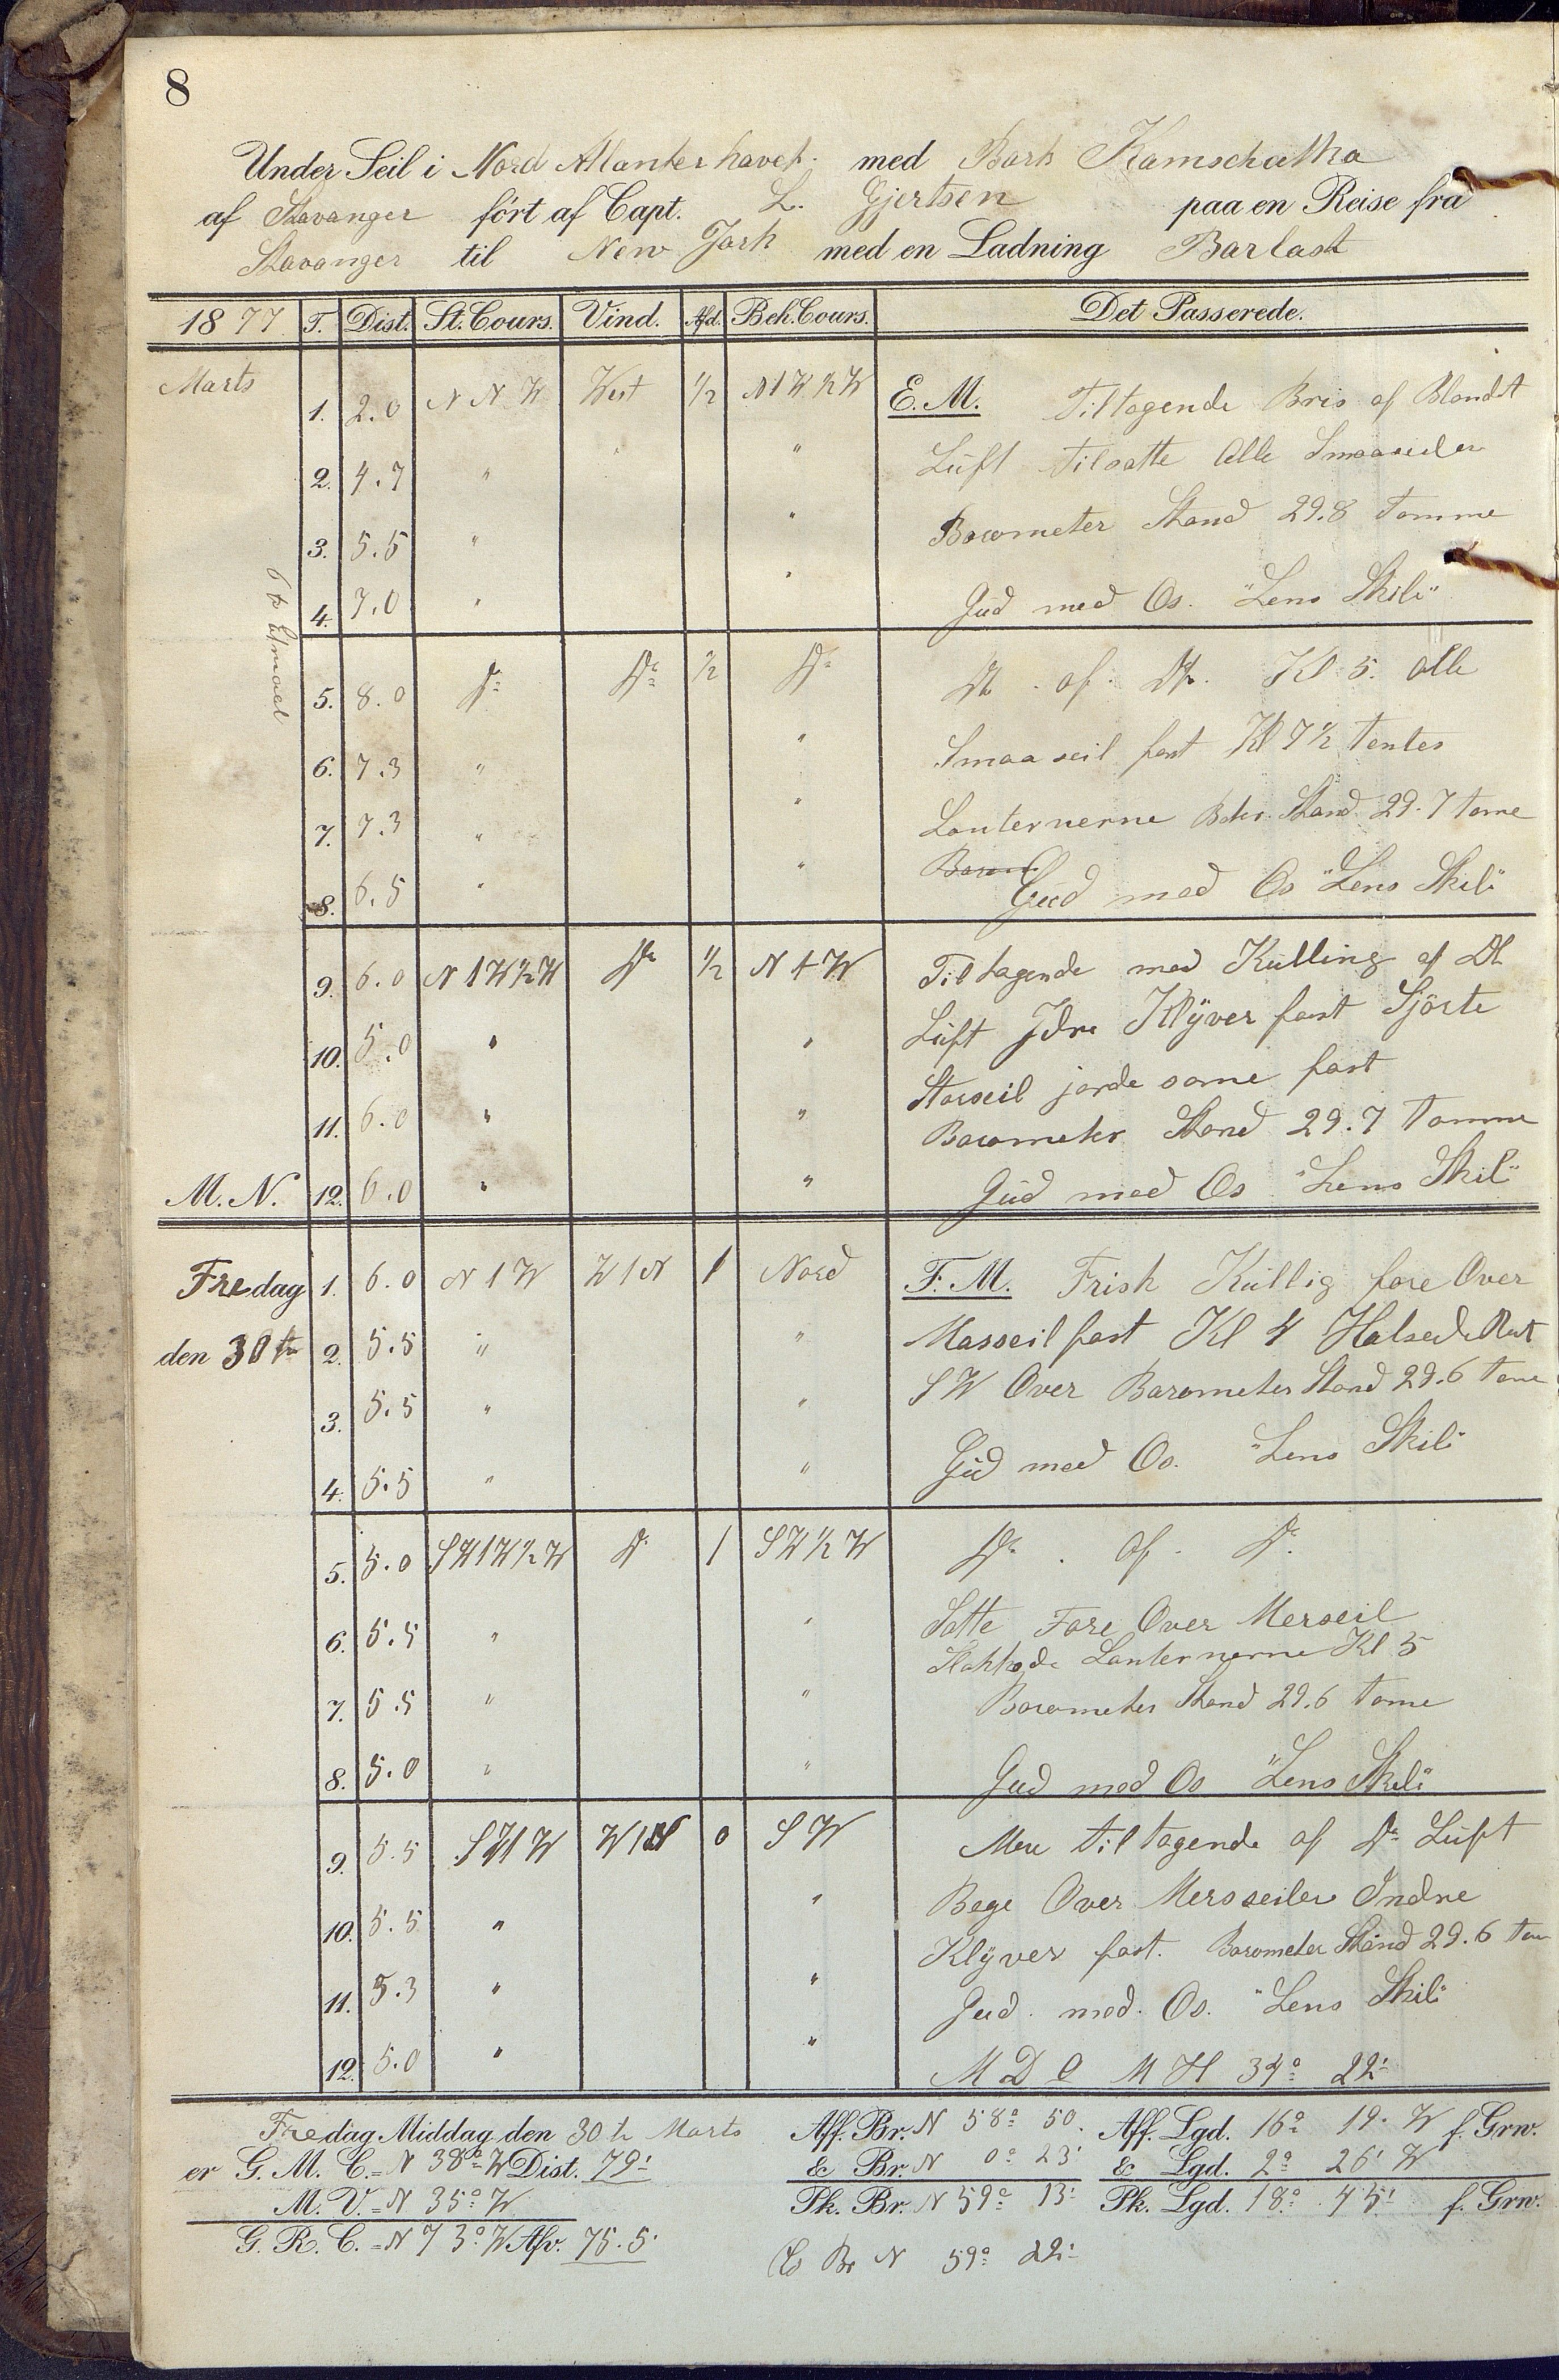 8
Under Seil i Nord Atlanterhavet. med Bark Kamschatka
af Stavanger ført af Capt. L. Gjertsen paa en Reise fra
Stavanger til New Jork med en Ladning Barlast
1877 T. Dist. St. Cours. Vind. Afd. Beh. Cours. Det Passerede.
Marts 1. 2.0 N N W West 1/2 N1W½W E.M. Tiltagende Bris af Blandt
2. 4.7 " " " Luft tilsatte Alle Smaaseiler
3. 5.5 " " Barometer Stand 29.8 Tomme
4. 7.0 " " Gud med Os. "Lens Skib"
5. 8.0 Do Do 1/2 Do Do . af . Do. Kl 5. alle
6. 7.3 " " Smaaseil fast Kl 7½ tentes
7. 7.3 " " Lanternerne Bar. Stand 29.7 tome
8. 6.5 " " Gud med Os "Lens Skib"
9. 6.0 N1W½W Do 1/2 N 1 W Tiltagende med Kulling af Do
10. 5.0 " " Luft Jdre Klÿver fast Sjörte
Storseil jorde same fast
11. 6.0 " " Barometer Stand 29.7 Tomme
M. N. 12. 6.0 " " Gud med Os "Lens Skib"
Fredag 1. 6.0 N 1 W W1N 1 Nord F.M. Frisk Kullig fore Over
den 30te 2. 5.5 " " Masseil fast Kl 4 Halsede Rut
3. 5.5 " " S W Over Barometer Stand 29.6 tome
4. 5.5 " " Gud med Os. "Lens Skib"
5. 5.0 SW1W½W Do 1 SW½W Do . af . Do.
6. 5.5 " " Satte Fore Over Merseil
Slokkede Lanternerne Kl 5
7. 5.5 " " Barometer Stand 29.6 tome
8. 5.0 " " Gud med Os "Lens Skib"
9. 5.5 SW1W W1N 0 S W Mere tiltagende af Do Luft
10. 5.5 " " Bege Over Mersseiler Indre
Klÿver fast. Barometer Stand 29.6 tom
11. 5.3 " " Gud med Os. "Lens Skib"
12. 5.0 " " M D O M H 34° 22'
Fredag Middag den 30te Marts Aff. Br. N 58° 50. Aff. Lgd. 16° 19. W f. Grw.
er G. M. C. = N 38° W Dist. 79' & Br. N 0° 23' & Lgd. 2° 26' W
M. V. = N 35° W Pk. Br. N 59° 13' Pk. Lgd. 18° 45' f. Grw.
G. R. C. = N 73° W Afv. 75.5'
Br N 59° 22'